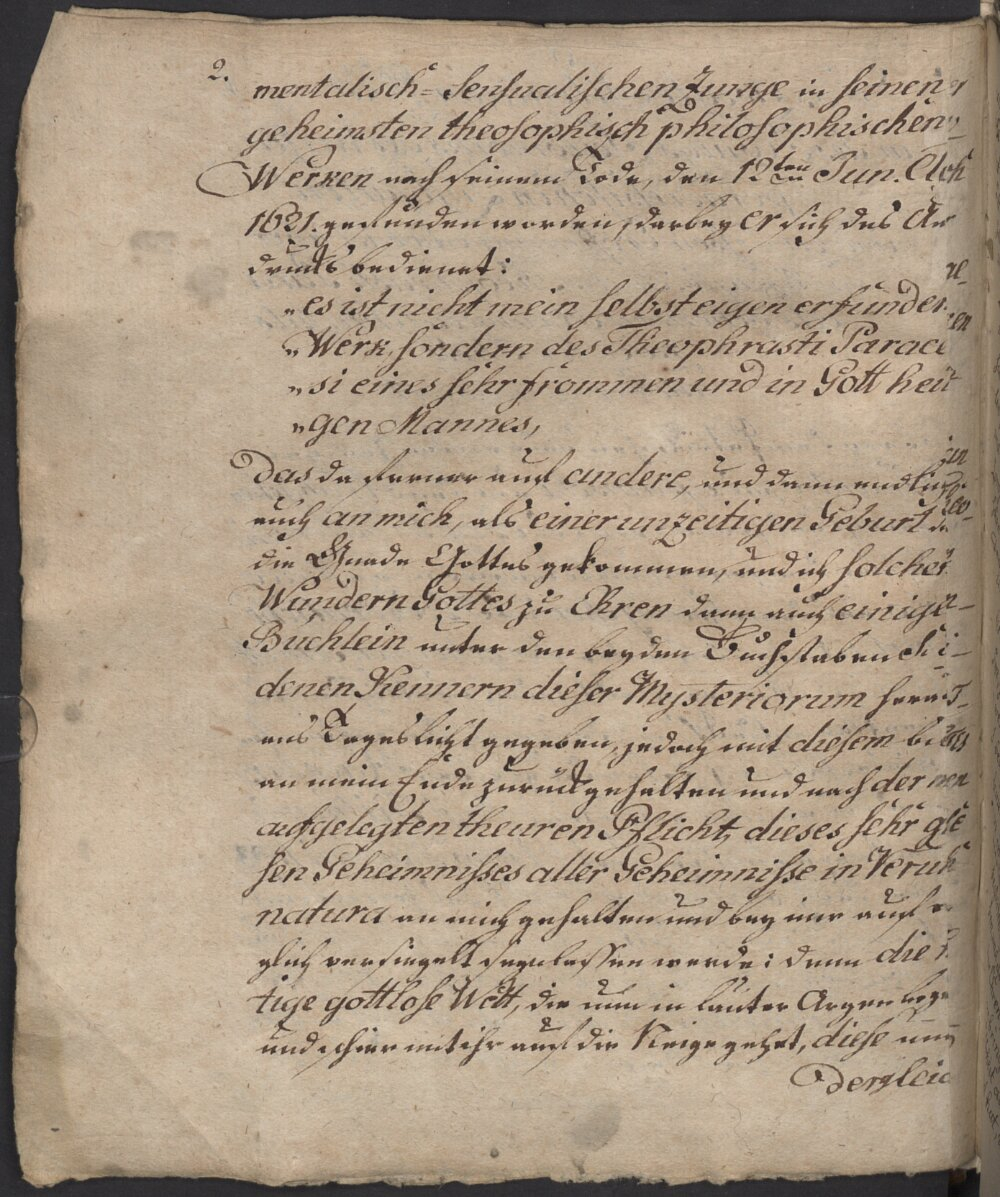 2.
mentalisch= sensualischen Zunge in seinen
geheimsten theosophisch philosophischen
Werken nach seinem Tode, den 12ten Jun.
1631. gefunden worden, darbey er sich des
drucks bedienet:
„es ist nicht mein selbst eigen erfunden
„Werk, sondern des Theophrasti Parace
„si eines sehr frommen und in Gott heil
„gen Mannes,
das da ferner auf andere, und dann endlich
auch an mich, als einer unzeitigen Geburt
die Gnade Gottes gekommen, und ich solchen
Wundern Gottes zu Ehren dann auch einige
Buchlein unter den beyden Buchstaben
denen Kennern dieser Mysteriorum
ans Tageslicht gegeben, jedoch mit diesem
an mein Ende zurück gehalten und nach der
aufgelegten theuren Pflicht, dieses sehr
sen Geheimnisses aller Geheimnisse in
natura an mich gehalten und bey mir auf
glich versiegelt seyn lassen werde: denn die
tige gottlose Welt, die nun in lauter Argen
und schier mit ihr auf die Neige gehet, diese
dergleic